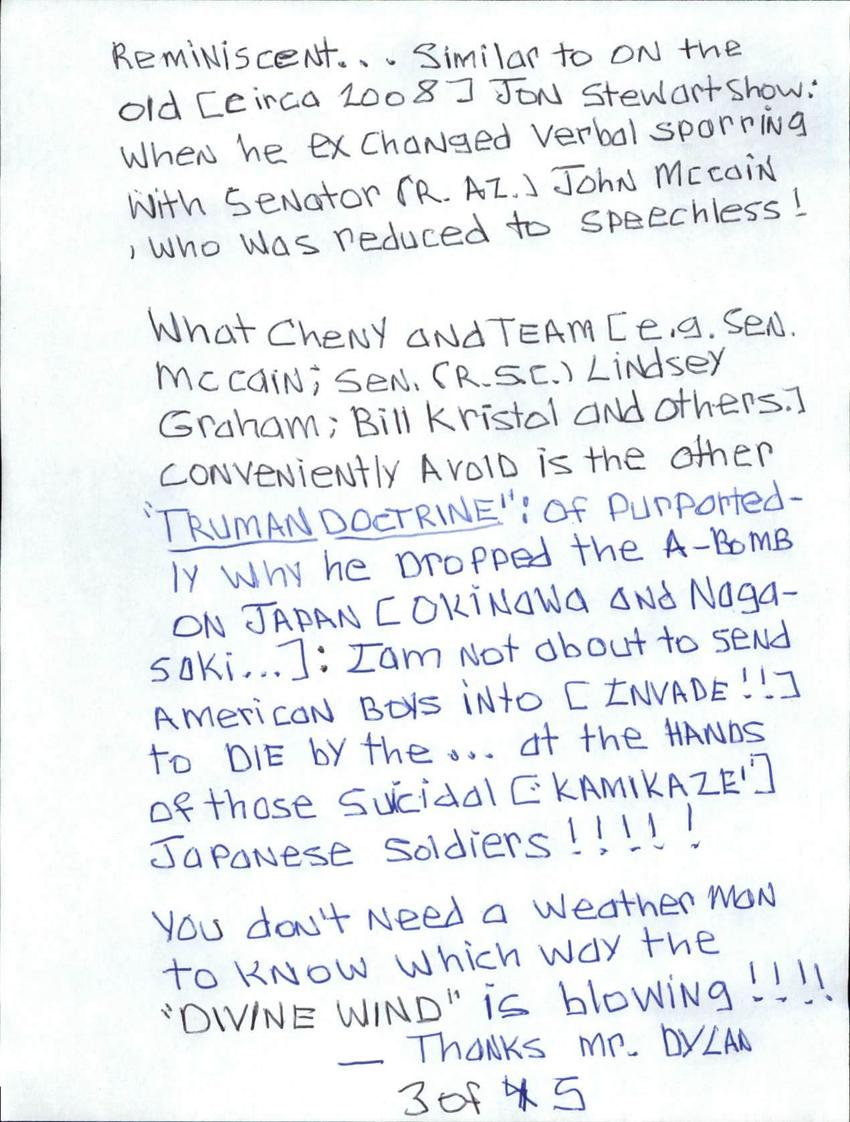 Reminiscent... Similar to on the
old [circa 2008] Jon Stewart show:
When he exchanged verbal sparring
With Senator (R. AZ.) John McCain
, who was reduced to speechless!
What Cheny and TEAM [e.g. Sen.
McCain; Sen. (R.S.C.) Lindsey
Graham; Bill Kristol and others.]
conveniently Avoid is the other
"TRUMAN DOCTRINE": of purported-
ly why he Dropped the A-BOMB
ON JAPAN [OKINAWA and Naga-
saki...]: I am not about to send
American Boys into [INVADE!!]
to DIE by the... at the HANDS
of those Suicidal ["KAMIKAZE"]
Japanese Soldiers!!!!!
You don't need a weather man
to know which way the
"DIVINE WIND" is blowing!!!!
— Thanks Mr. DYLAN
3 of 5